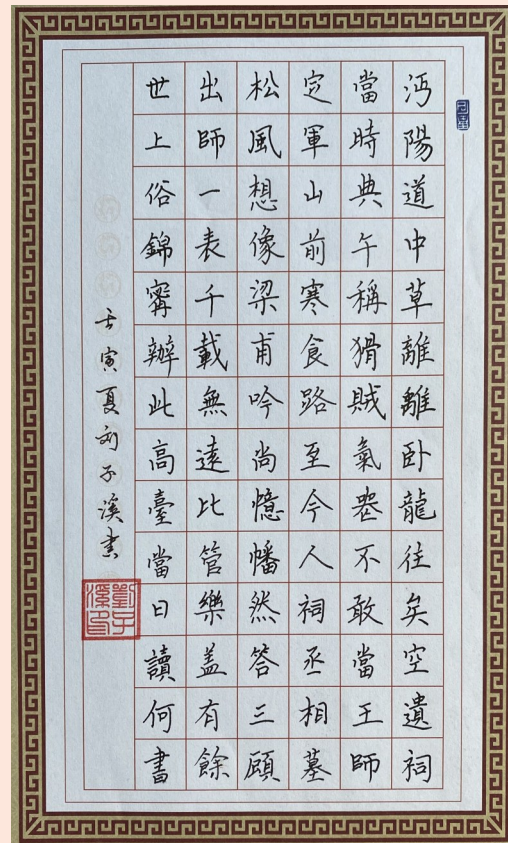 沔陽道中草離離卧龍往矣空遺祠
當時典午稱猾賊氣喪不敢當王師
定軍山前寒食路至今人祠丞相墓
松風想像梁甫吟尚憶幡然答三顧
出師一表千載無遠比管樂盖有餘
世上俗錦寧辦此高臺當日讀何書
壬寅夏刘子溪书
劉子溪印